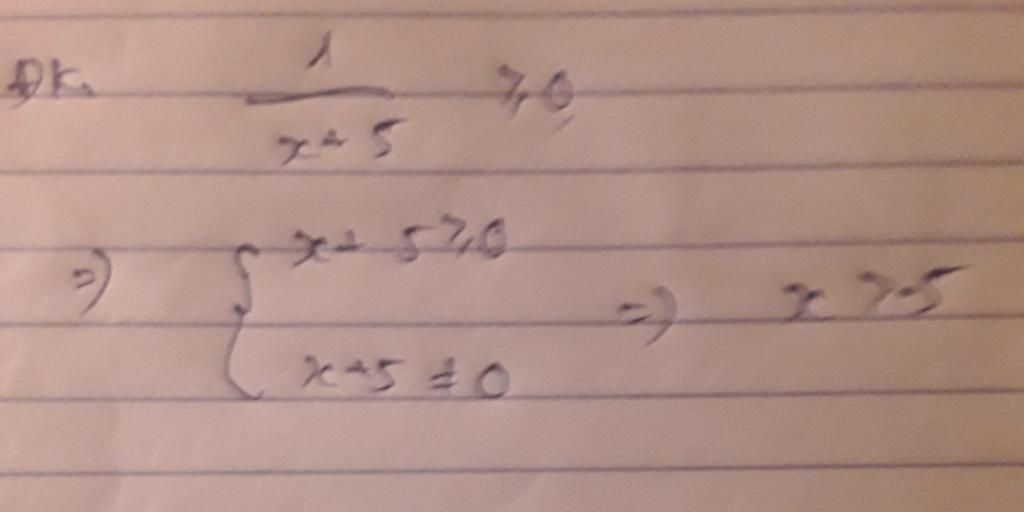 ĐK. 1/(x+5) ⩾ 0
=> { x+5 ⩾ 0
x+5 ≠ 0 => x > -5